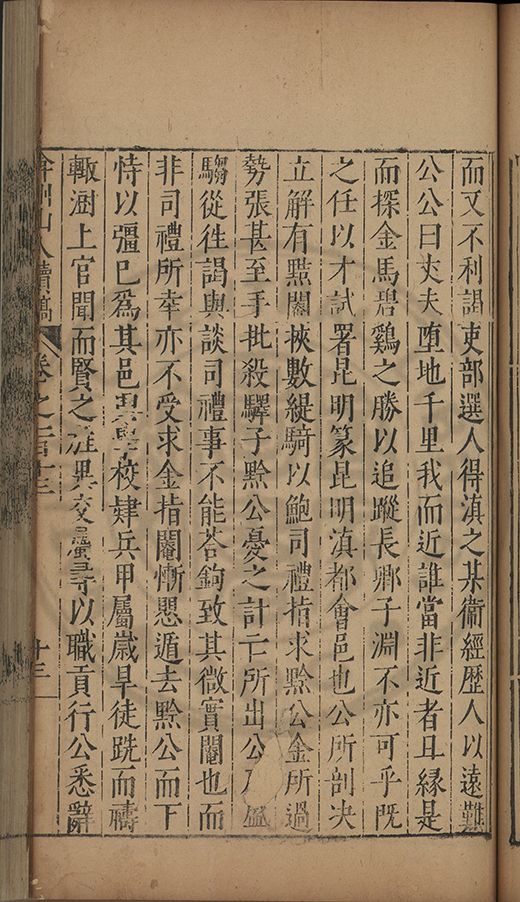 而又不利謁吏部選人得滇之某衛經歷人以遠難
公公曰丈夫堕地千里我而近誰當非近者且縁是
而探金馬碧鷄之勝以追蹤長卿子淵不亦可乎既
之任以才試署昆明篆昆明滇都會邑也公所剖决
立解有黠閹挾數緹騎以鮑司禮指求黔公金所過
勢張甚至手批殺驛子黔公憂之計亡所出公盛
騶從徃謁與談司禮事不能荅鉤致其微實閹也而
非司禮所幸亦不受求金指閹慚愳遁去黔公而下
恃以彊已爲其邑學校肄兵甲屬歲旱徒跣而禱
輙澍上官聞而賢之以職貢行公悉辭
山人續稿 卷之一百十三 十三